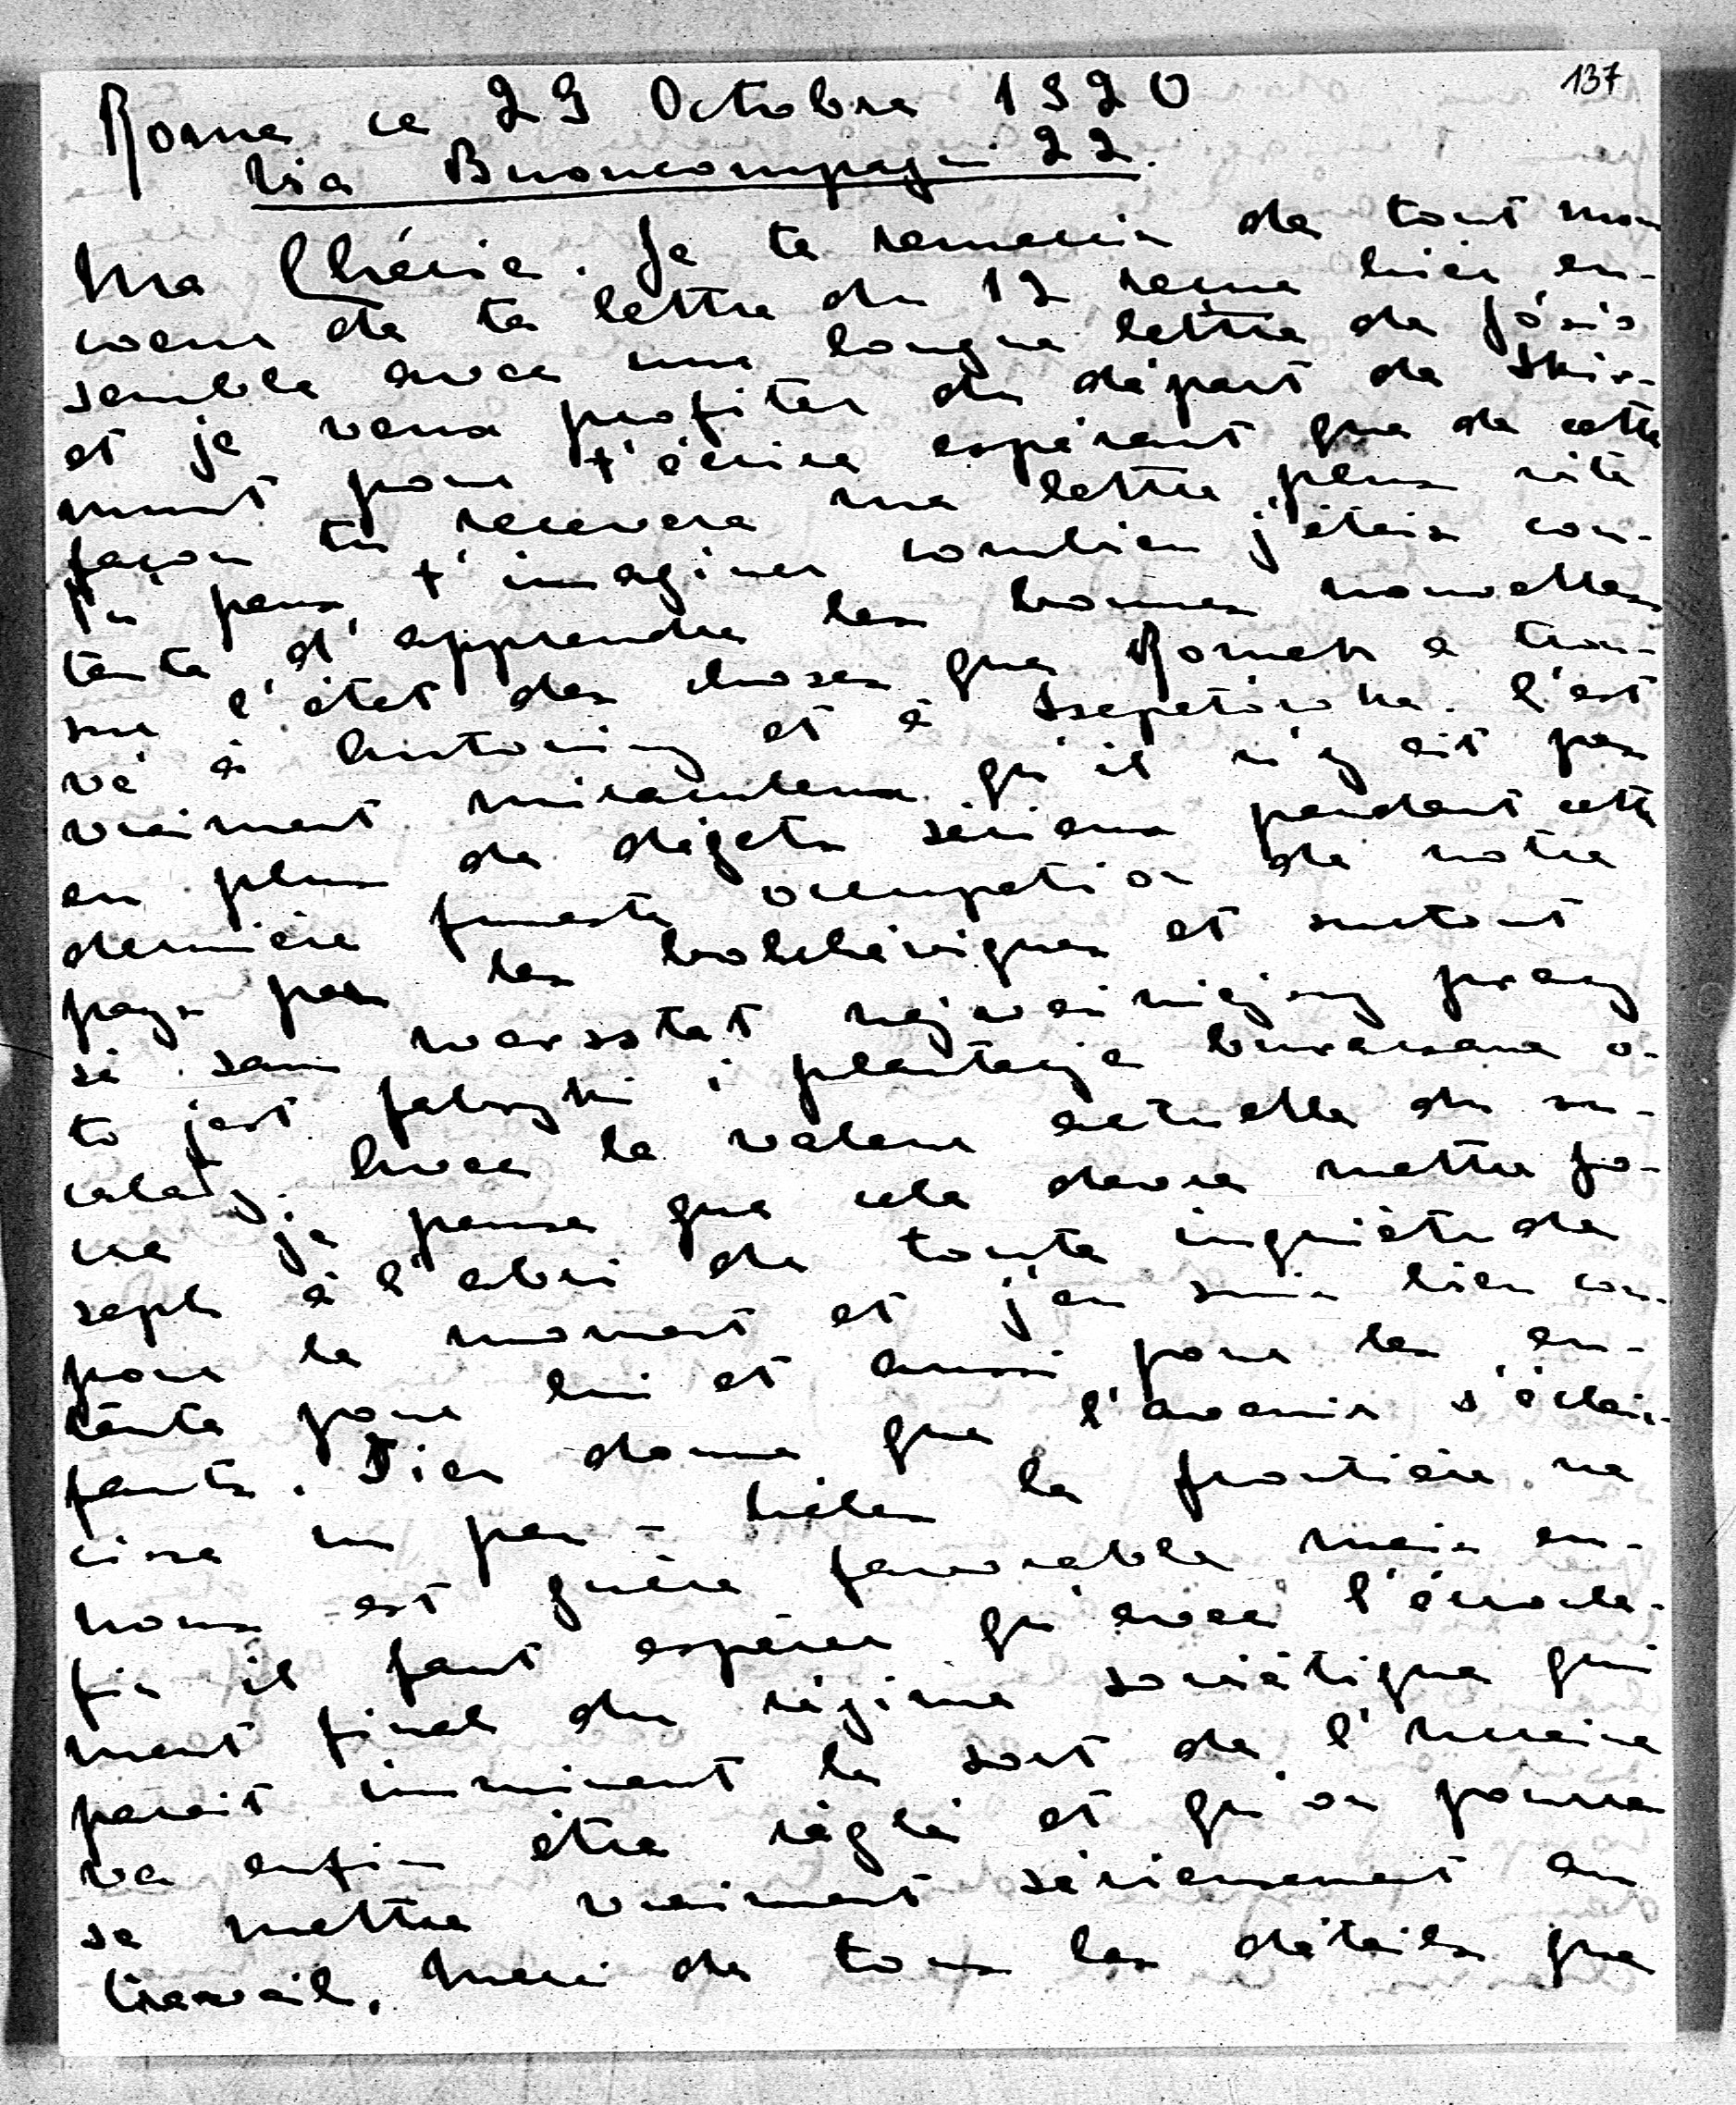 137
Rome ce 29 Octobre 1920
Via Buoncompagni 22.
Ma Chérie. Je te remercie de tout mon
coeur de ta lettre du 12 reçue hier en-
semble avec une longue lettre de Józió
et je veux profiter du départ de Skir-
munt pour t'écrire espérant que de cette
façon tu recevera ma lettre plus vite
Tu peux t'imaginer combien j'étais con-
tente d'apprendre les bonnes nouvelles
sur l'état des choses que Romek a trou-
vé à Antoniny et à Szepetówka. C'est
vraiment miraculeux qu'il n'y ait pas
eu plus de dégets sérieux pendant cette
dernière funeste occupation de notre
pays par les bolchéviques et surtout
si sam warsztat najważniejszy pracy
to jest fabryki i plantacje buraczane o-
calały. Avec la valeur actuelle du su-
cre je pense que cela devra mettre Jo-
seph à l'abri de toute inquiétude
pour le moment et j'en suis bien con-
tente pour lui et aussi pour les en-
fants. Dieu donne que l'avenir s'éclair-
cisse un peu - hélas la frontière ne
nous est guère favorable mais en-
fin il faut espérer qu'avec l'écroule-
ment final du régime soviétique qui
parait imminent le sort de l'Ucraine
va enfin être réglé et qu'on pourra
se mettre vraiment sérieusement au
travail. Merci de tous les détails que